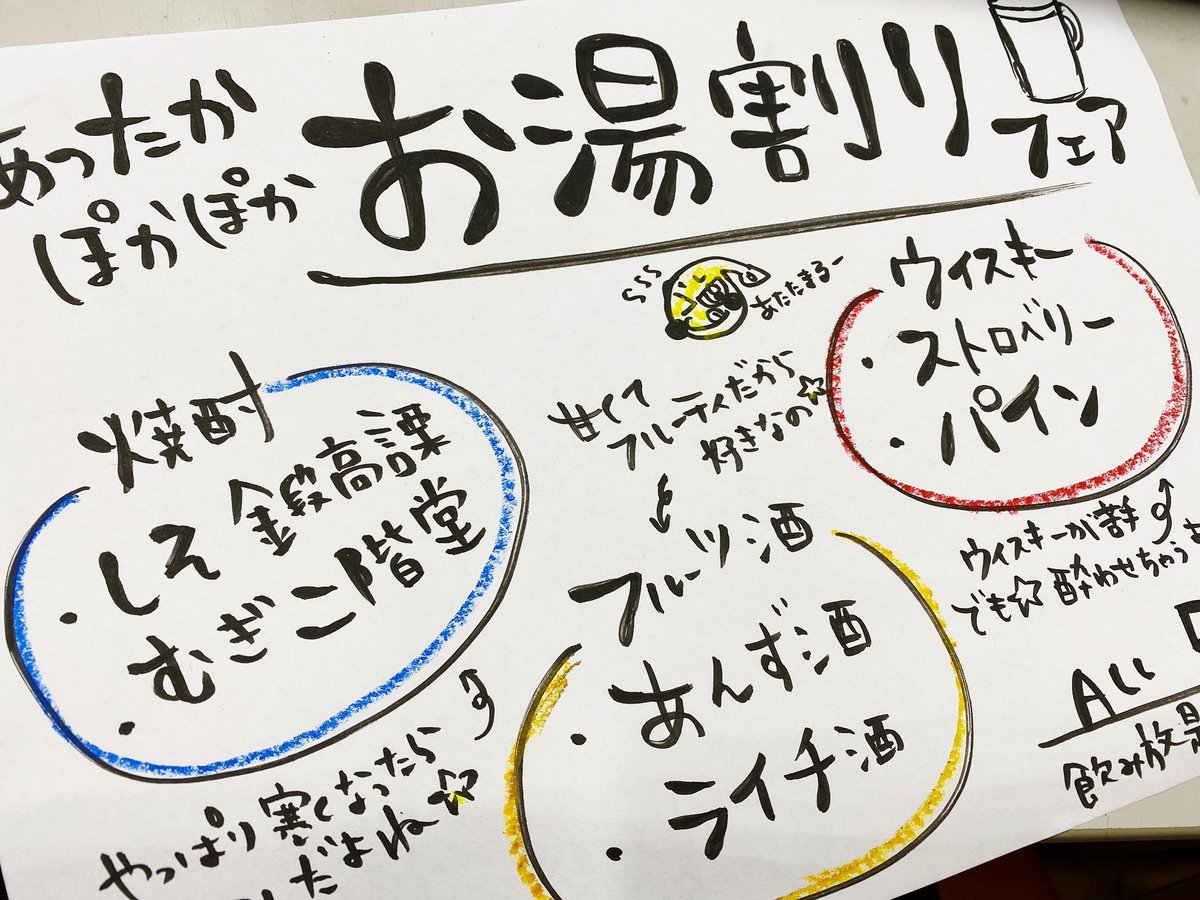 あったか
ぽかぽか
お湯割り
フェア
あたたまるー
ウィスキー
・ストロベリー
・パイン
焼酎
・しそ 鍛高譚
・むぎ 二階堂
甘くて
フルーティだから
好きなの☆
フルーツ酒
・あんず酒
・ライチ酒
ウィスキーが苦手
でも☆酔わせちゃうよ
やっぱり寒くなったら
だよね☆
All
飲み放題